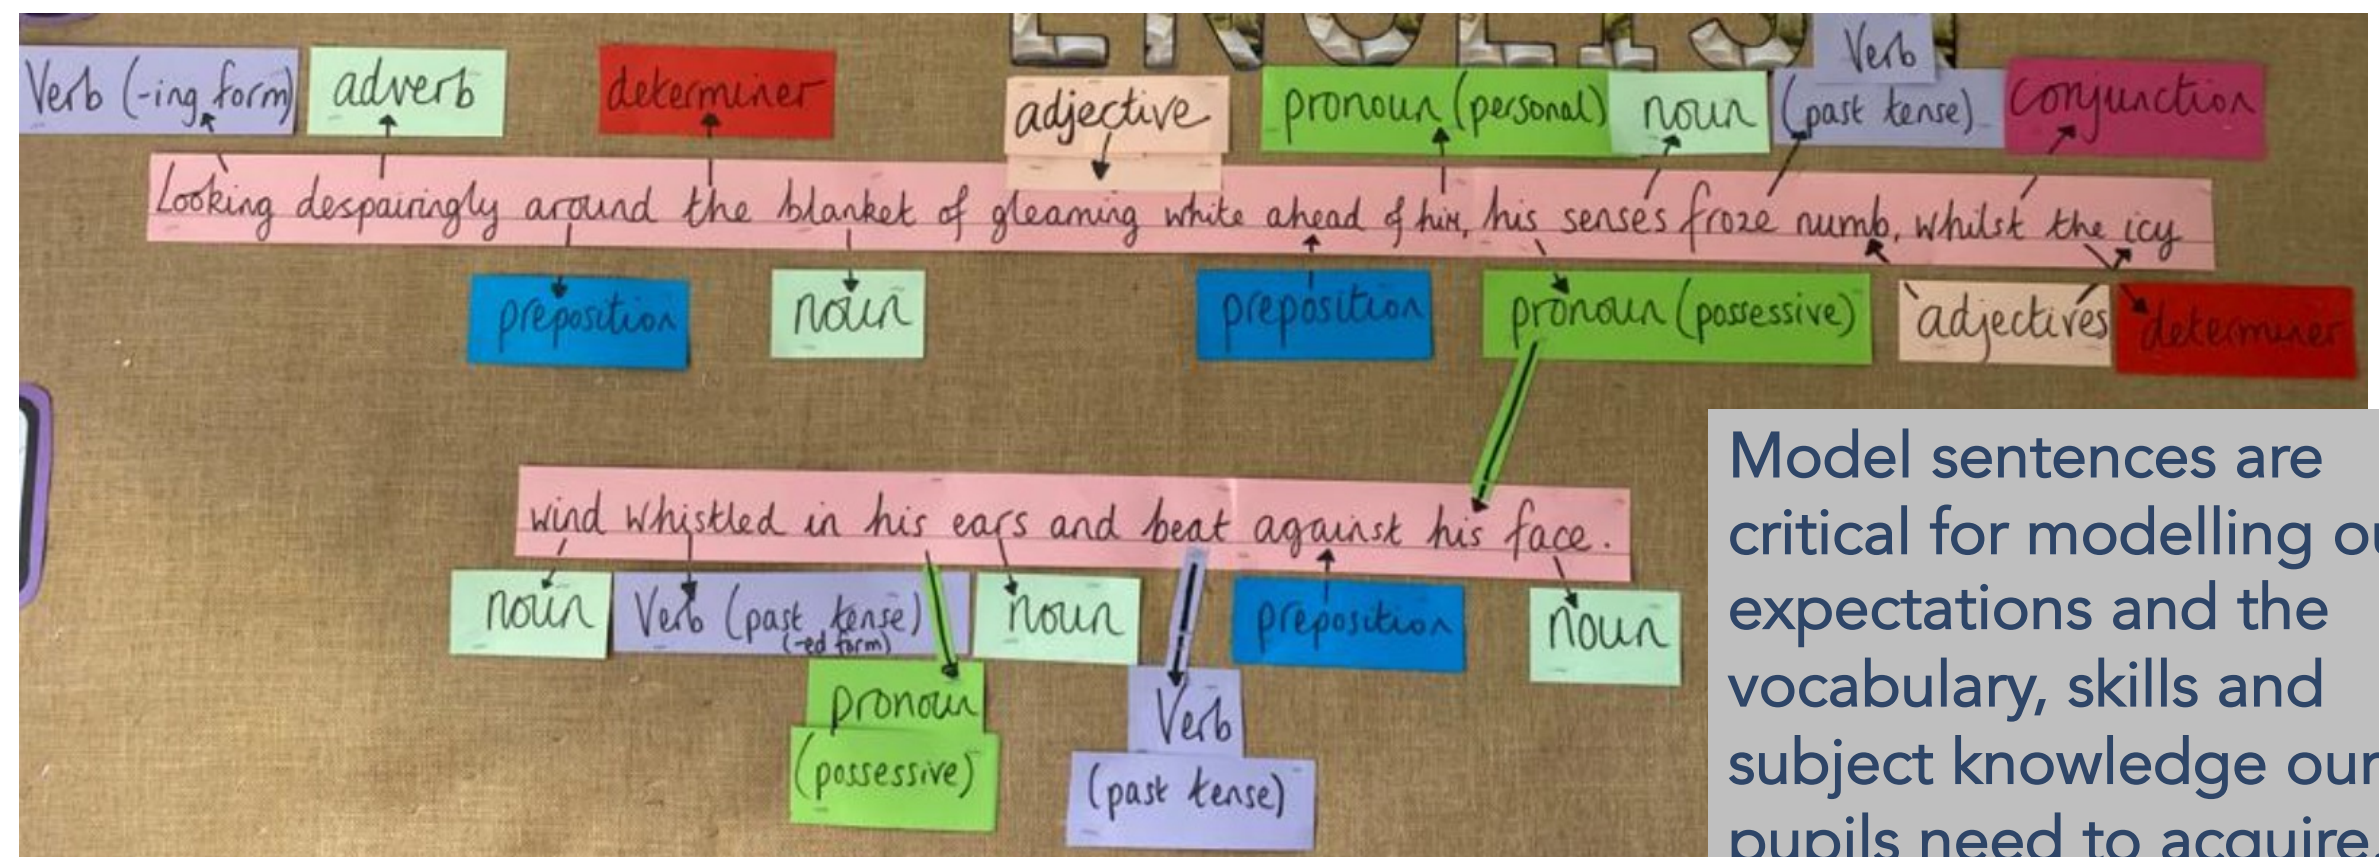 ENGLIS
Verb
Verb (-ing form) adverb determiner adjective pronoun (personal) noun (past tense) conjunction
Looking despairingly around the blanket of gleaming white ahead of him, his senses froze numb, whilst the icy
preposition noun preposition pronoun (possessive) adjectives determiner
wind whistled in his ears and beat against his face.
noun Verb (past tense) noun preposition noun
(-ed form)
pronoun Verb
(possessive) (past tense)
Model sentences are
critical for modelling ou
expectations and the
vocabulary, skills and
subject knowledge our
pupils need to acquire.